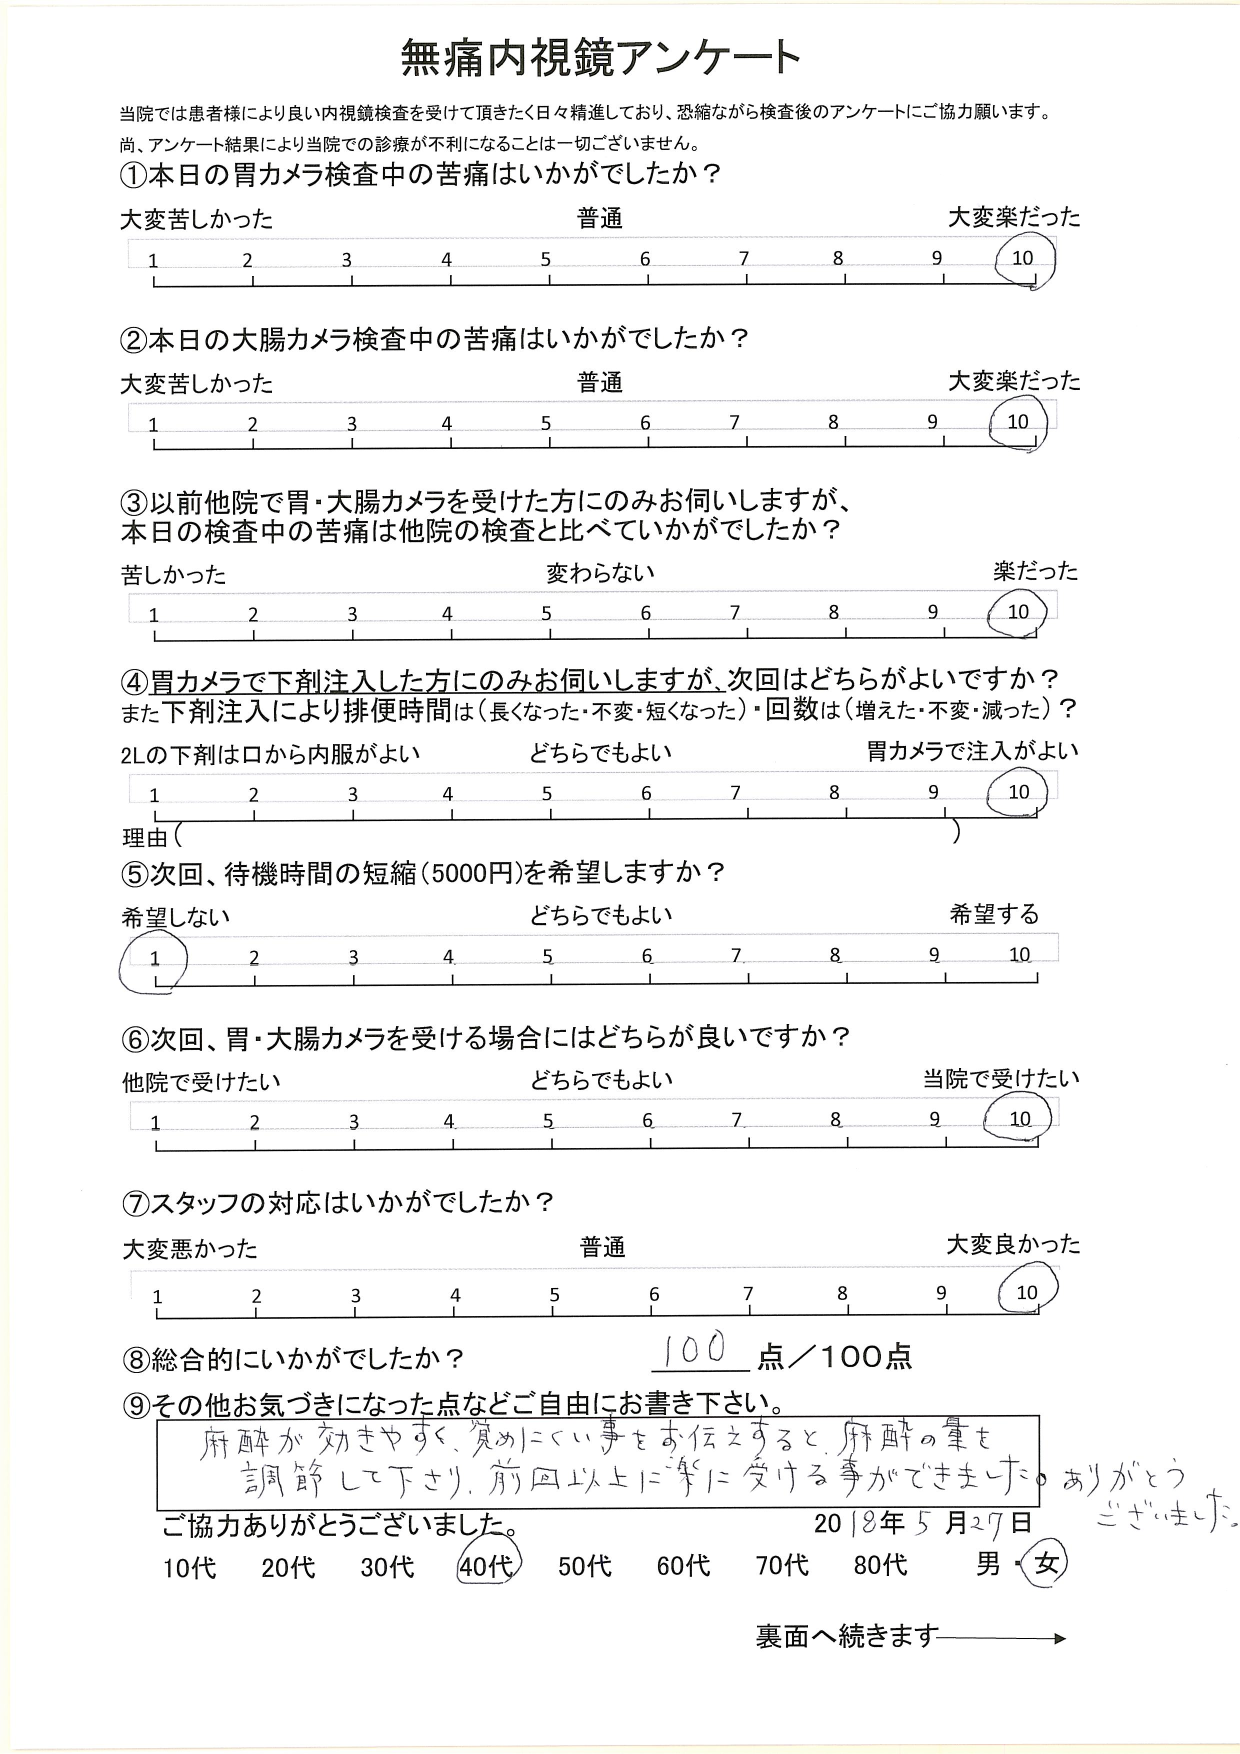 無痛内視鏡アンケート
当院では患者様により良い内視鏡検査を受けて頂きたく日々精進しており、恐縮ながら検査後のアンケートにご協力願います。
尚、アンケート結果により当院での診療が不利になることは一切ございません。
①本日の胃カメラ検査中の苦痛はいかがでしたか？
大変苦しかった 普通 大変楽だった
1 2 3 4 5 6 7 8 9 10
②本日の大腸カメラ検査中の苦痛はいかがでしたか？
大変苦しかった 普通 大変楽だった
1 2 3 4 5 6 7 8 9 10
③以前他院で胃・大腸カメラを受けた方にのみお伺いしますが、
本日の検査中の苦痛は他院の検査と比べていかがでしたか？
苦しかった 変わらない 楽だった
1 2 3 4 5 6 7 8 9 10
④胃カメラで下剤注入した方にのみお伺いしますが、次回はどちらがよいですか？
また下剤注入により排便時間は（長くなった・不変・短くなった）・回数は（増えた・不変・減った）？
2Lの下剤は口から内服がよい どちらでもよい 胃カメラで注入がよい
1 2 3 4 5 6 7 8 9 10
理由（ ）
⑤次回、待機時間の短縮（5000円）を希望しますか？
希望しない どちらでもよい 希望する
1 2 3 4 5 6 7 8 9 10
⑥次回、胃・大腸カメラを受ける場合にはどちらが良いですか？
他院で受けたい どちらでもよい 当院で受けたい
1 2 3 4 5 6 7 8 9 10
⑦スタッフの対応はいかがでしたか？
大変悪かった 普通 大変良かった
1 2 3 4 5 6 7 8 9 10
⑧総合的にいかがでしたか？ 100 点／100点
⑨その他お気づきになった点などご自由にお書き下さい。
麻酔が効きやすく、覚めにくい事をお伝えすると、麻酔の量を
調節して下さり、前回以上に楽に受ける事ができました。ありがとう
ございました。
ご協力ありがとうございました。 2018年5月27日
10代 20代 30代 40代 50代 60代 70代 80代 男・女
裏面へ続きます